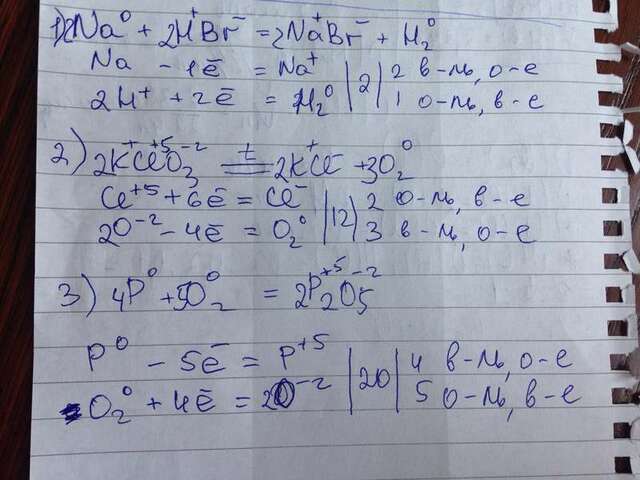 1) 2Na⁰ + 2H⁺Br⁻ = 2Na⁺Br⁻ + H₂⁰
Na - 1ē = Na⁺ | 2 | 2 в-ль, о-е
2H⁺ + 2ē = H₂⁰ | 1 о-ль, в-е
2) 2K⁺Cl⁺⁵O₃⁻² =t= 2K⁺Cl⁻ + 3O₂⁰
Cl⁺⁵ + 6ē = Cl⁻ | 12 | 2 о-ль, в-е
2O⁻² - 4ē = O₂⁰ | 3 в-ль, о-е
3) 4P⁰ + 5O₂⁰ = 2P₂⁺⁵O₅⁻²
P⁰ - 5ē = P⁺⁵ | 20 | 4 в-ль, о-е
O₂⁰ + 4ē = 2O⁻² | 5 о-ль, в-е